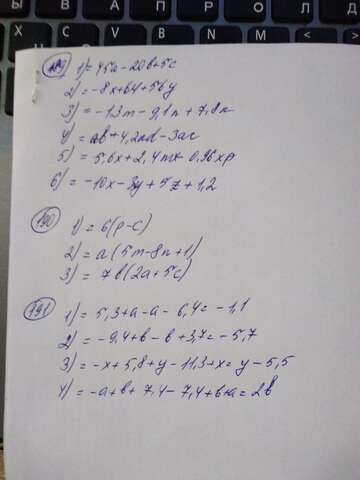 В А П Р О Л
С М И Т Ь Б Ю
1) = 45a - 20b + 5c
2) = -8x + 64 + 56y
3) = -1,3m - 9,1n + 7,8k
4) = ab + 4,2nd - 3ac
5) = 5,6x + 2,4mx - 0,96xp
6) = -10x - 3y + 5z + 1,2
190
1) = 6(p - c)
2) = a(5m - 8n + 1)
3) = 7b(2a + 5c)
191
1) = 5,3 + a - a - 6,4 = -1,1
2) = -9,4 + b - b + 3,7 = -5,7
3) = -x + 5,8 + y - 11,3 + x = y - 5,5
4) = -a + b + 7,4 - 7,4 + b + a = 2b